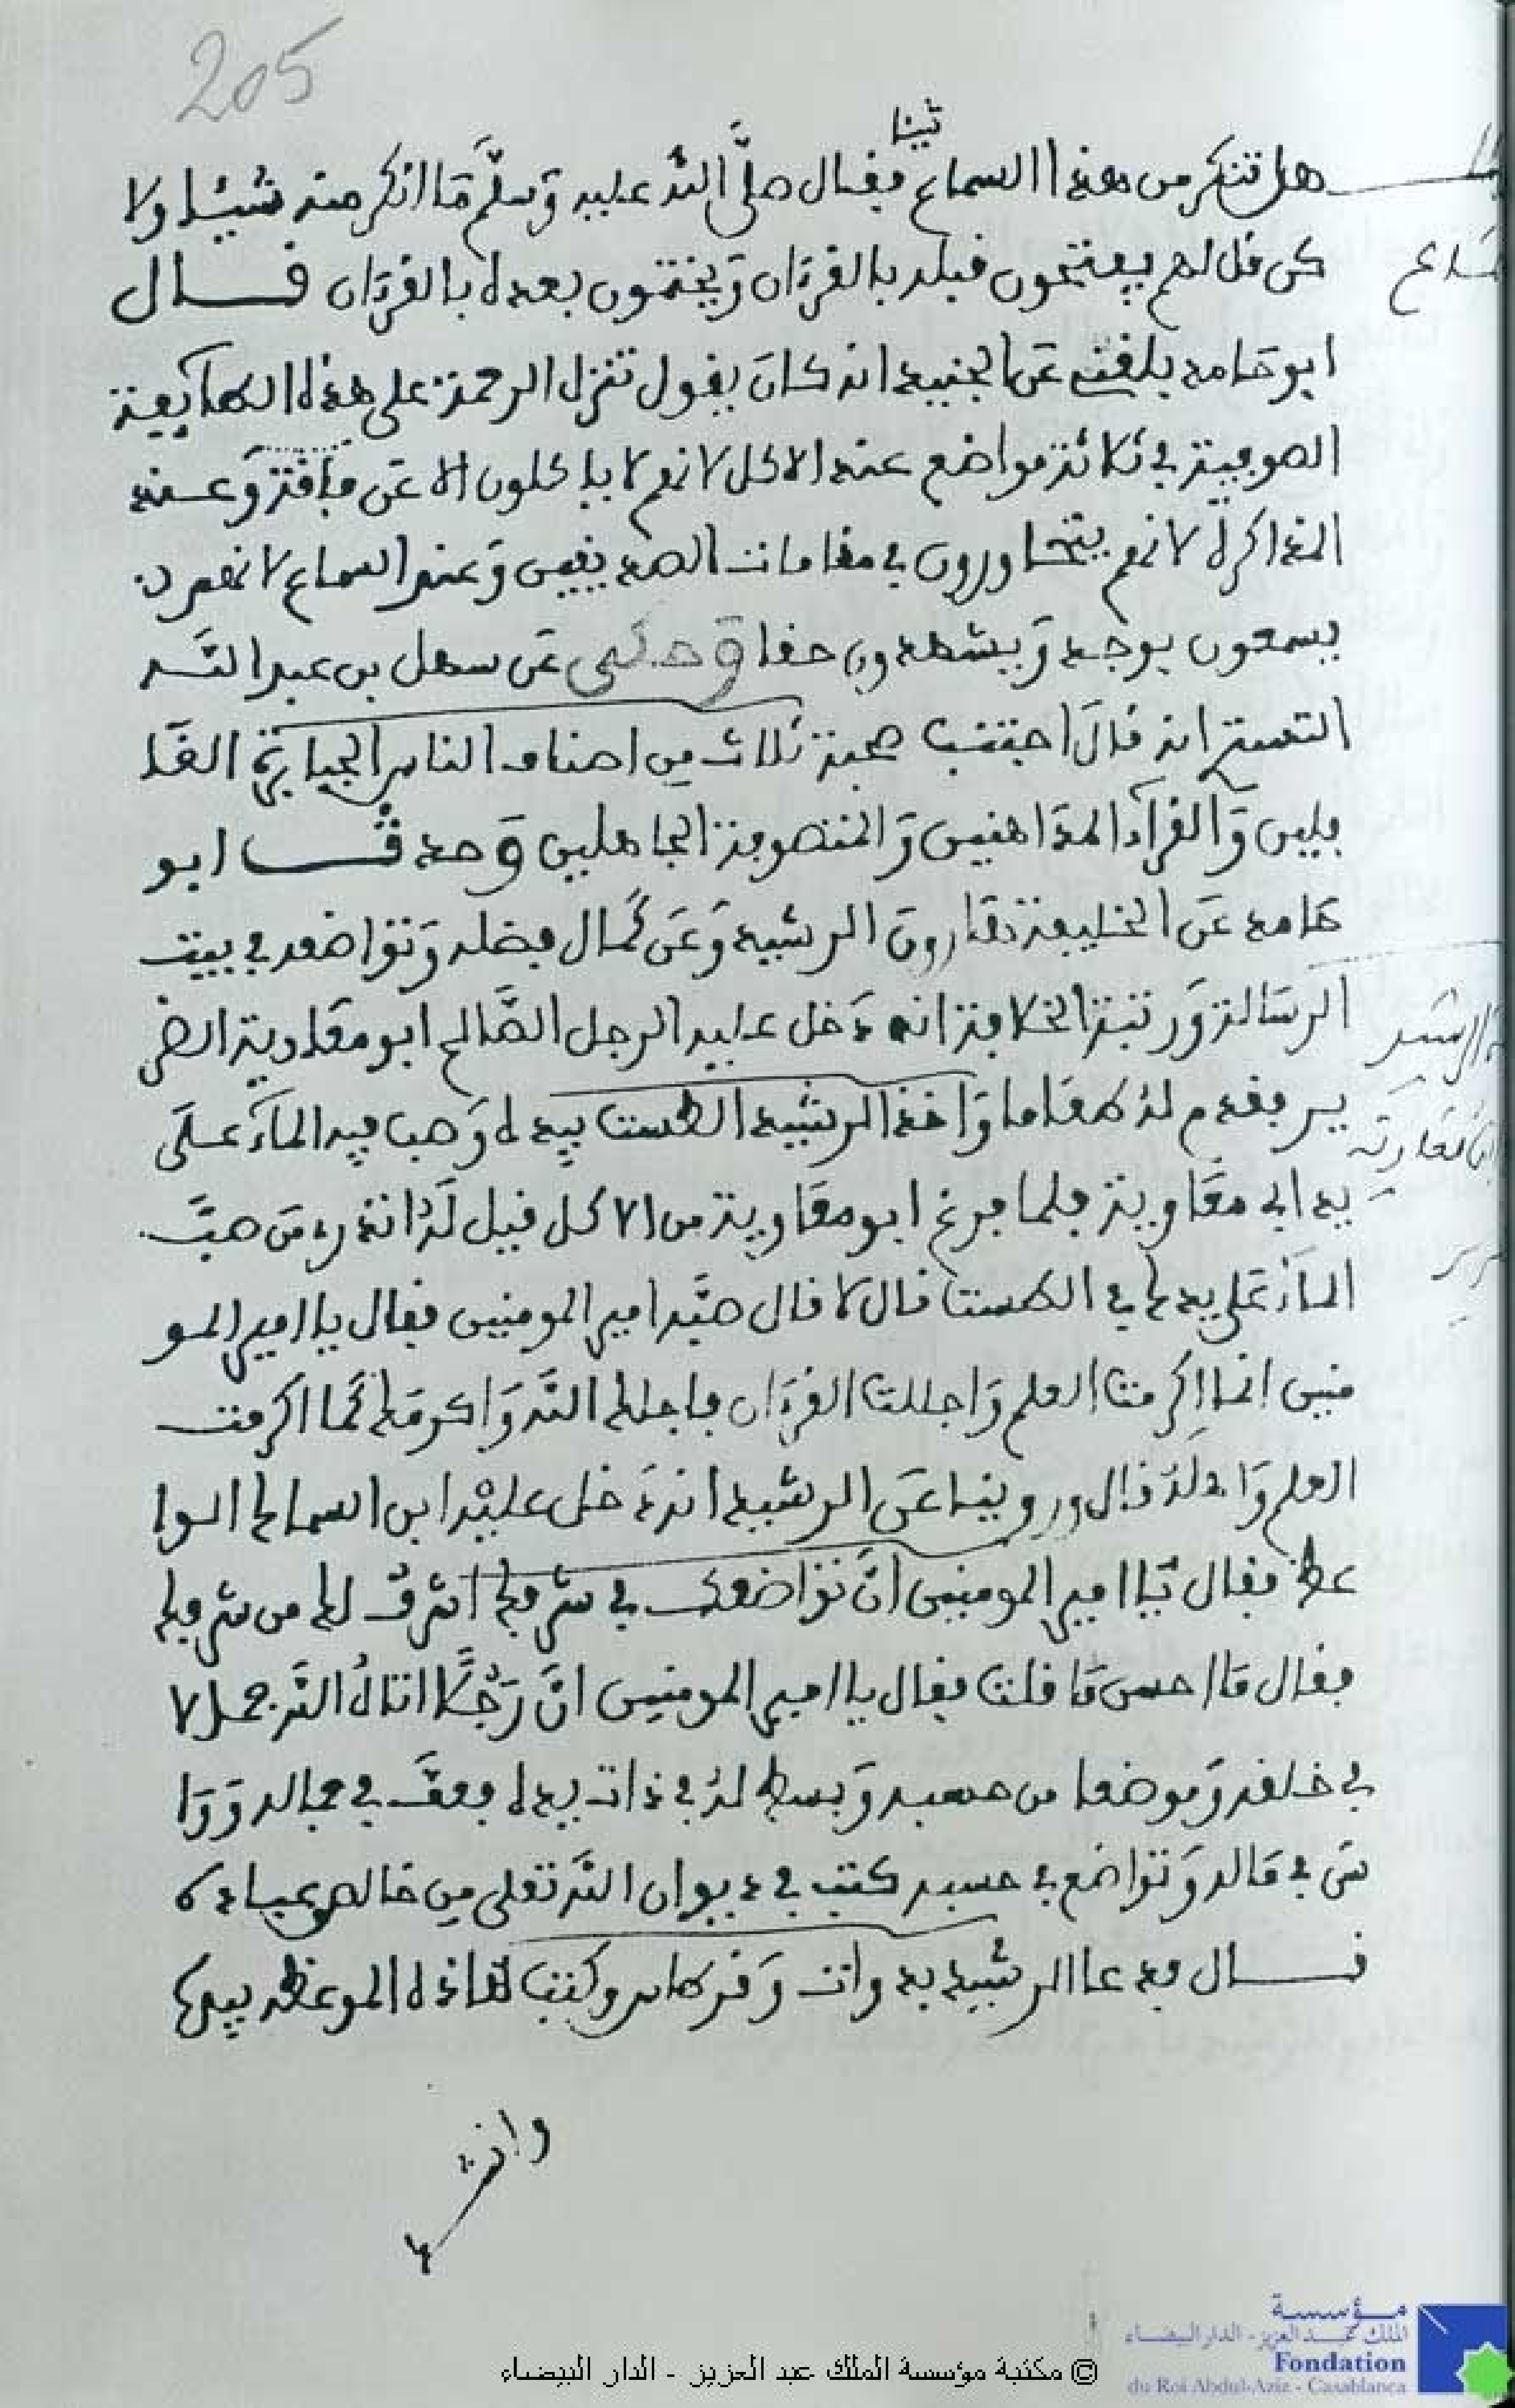 205
شيئا
هل تنكر من هذا السماع فقال صلى الله عليه وسلم ما انكر منه شيئا ولا
كن قل لهم يفتتحون قبله بالقرءان ويختمون بعده بالقرءان قال
ابو حامد بلغت عن الجنيد انه كان يقول تنزل الرحمة على هذه الطايفة
الصوفية في ثلاثة مواضع عند الاكل لانهم لا ياكلون الا عن فاقة وعند
المذاكرة لانهم يتحاورون في مقامات الصديقين وعند السماع لانهم
يسمعون بوجد ويشهدون حقا وحكى عن سهل بن عبد الله
التستري انه قال اجتنب صحبة ثلاث من اصناف الناس الجبابرة الغا
فلين والقرآء المداهنين والمتصوفة الجاهلين وحدثنا ابو
حامد عن الخليفة هارون الرشيد وعن كمال فضله وتواضعه في بيت
الرسالة ورتبة الخلافة انه دخل عليه الرجل الصالح ابو معاوية الضر
ير فقدم له طعاما واخذ الرشيد الطست بيده وصب فيه المآء على
يد ابي معاوية فلما فرغ ابو معاوية من الاكل قيل له اتدري من صب
المآء على يدك في الطست قال لا قال صبه امير المومنين فقال يا امير المو
منين انما اكرمت العلم واجللت القرءان فاجلك الله واكرمك كما اكرمت
العلم واهله قال وروينا عن الرشيد انه دخل عليه ابن السماك الوا
عظ فقال يا امير المومنين ان تواضعك في شرفك اشرف لك من شرفك
فقال ما احسن ما قلت فقال يا امير المومنين ان رجلا اتاه الله جمالا
في خلقه وموضعا من حسبه وبسط له في ذات يده فعف في جماله ووا
سى في ماله وتواضع في حسبه كتب في ديوان الله تعلى من خالص عباده
قال فدعا الرشيد بدوات وقرطاس وكتب هاذه الموعظه بيده
وانه
السماع
الرشيد
ابا معاوية
مؤسسة
الملك عبد العزيز - الدار البيضاء
Fondation
du Roi Abdul-Aziz - Casablanca
© مكتبة مؤسسة الملك عبد العزيز - الدار البيضاء